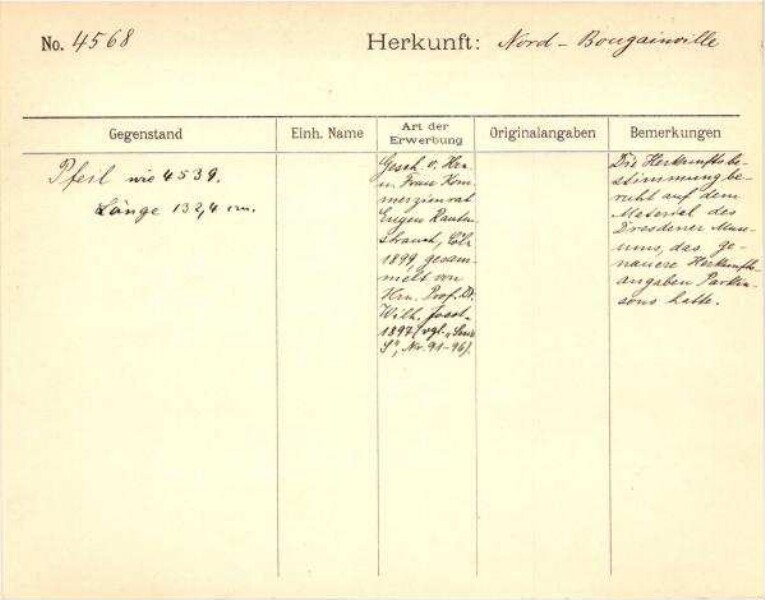 No. 4568
Herkunft: Nord - Bougainville
Gegenstand
Einh. Name
Art der Erwerbung
Originalangaben
Bemerkungen
Pfeil wie 4539.
Länge 132,4 cm.
Gesch. v. Hrn.
u. Frau Kom-
merzienrat
Eugen Rauten-
strauch, Cöln
1899, gesam-
melt von
Hrn. Prof. Dr.
Wilh. Joest.
1897 (vgl.
S", Nr. 91-96).
Die Herkunftsbe-
stimmung be-
ruht auf dem
Material des
Dresdener Muse-
ums, das ge-
nauere Herkunfts-
angaben Parkin-
sons hatte.